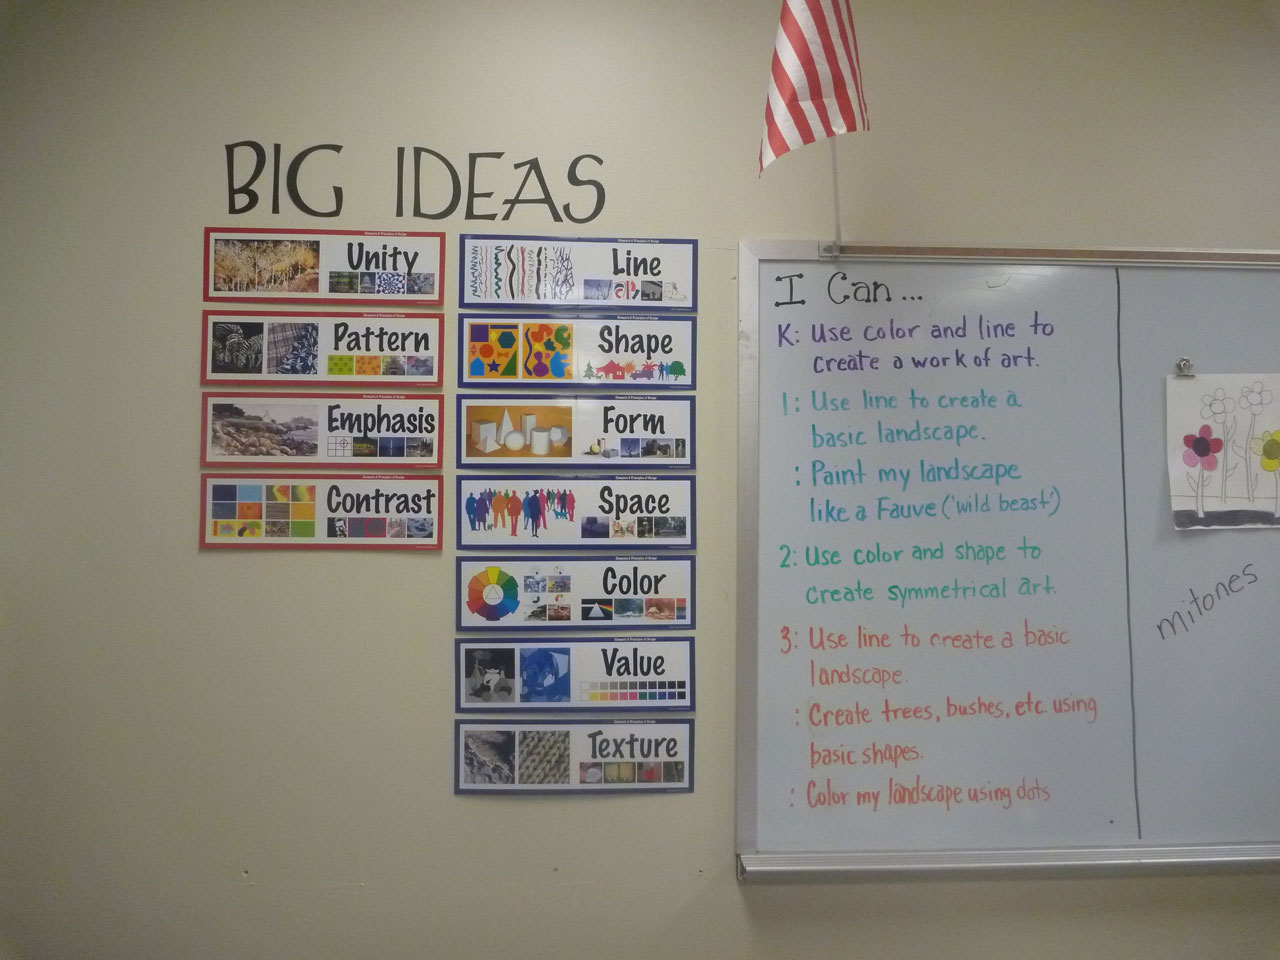 BIG IDEAS
Unity
Pattern
Emphasis
Contrast
Line
Shape
Form
Space
Color
Value
Texture
I Can...
K: Use color and line to
create a work of art.
1: Use line to create a
basic landscape.
: Paint my landscape
like a Fauve ('wild beast')
2: Use color and shape to
create symmetrical art.
3: Use line to create a basic
landscape.
: Create trees, bushes, etc. using
basic shapes.
: Color my landscape using dots
mitones